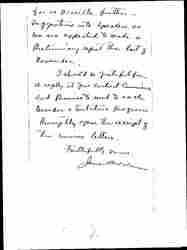 for as possible further
suggestions into speakers as
we are expected to make a
Preliminary report the last of
November.
I should be grateful for
a reply at your earliest
and Promise to send to each
member a tentative Program
Promptly upon the receipt of
the answer letters.
Faithfully yours,